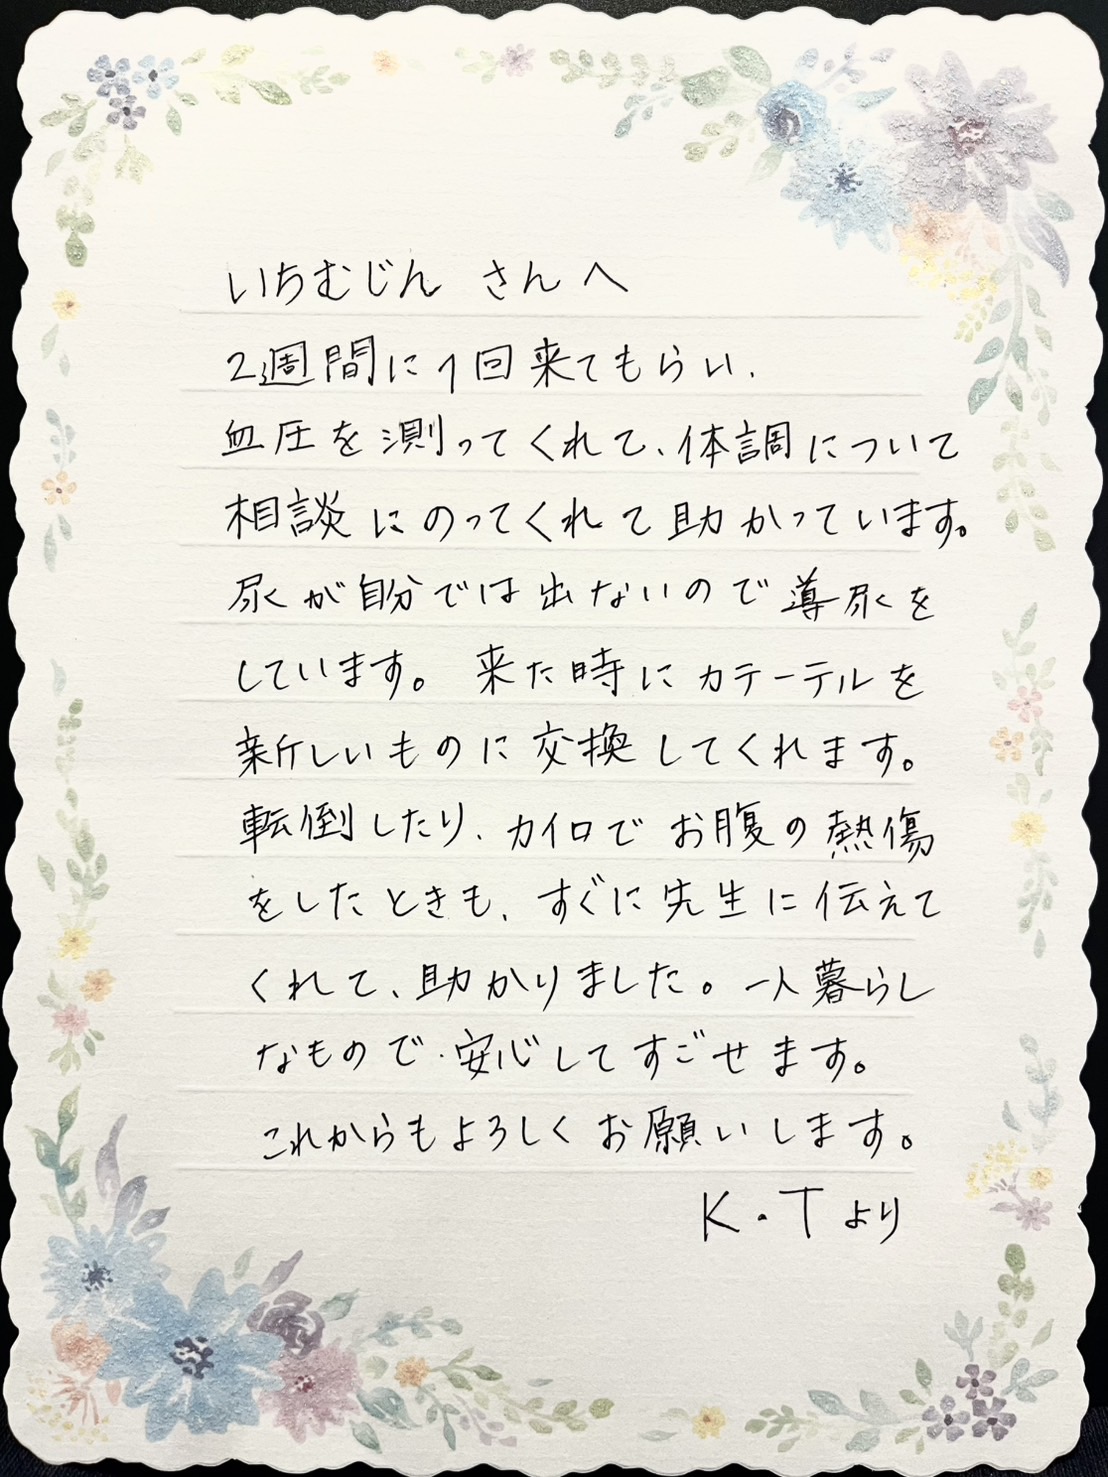 いちむじん さんへ
2週間に1回来てもらい、
血圧を測ってくれて、体調について
相談にのってくれて助かっています。
尿が自分では出ないので導尿を
しています。来た時にカテーテルを
新しいものに交換してくれます。
転倒したり、カイロでお腹の熱傷
をしたときも、すぐに先生に伝えて
くれて、助かりました。一人暮らし
なもので、安心してすごせます。
これからもよろしくお願いします。
K・Tより